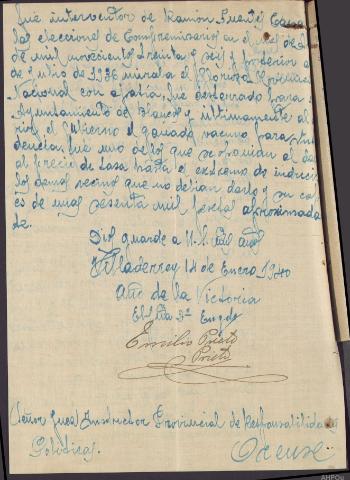 fue interventor de Ramon Fuentes Cana
las elecciones de Compromisarios en el mes de
de mil novecientos treinta y seis y posterior al
de Julio de 1936 miraba el Glorioso
Nacional con apatia, fue desterrado para
Ayuntamiento de Blancos y ultimamente al
el Gobierno el ganado vacuno para
fue uno de los que se oponian al
al precio de tasa hasta el extremo de
los demas vecinos que no debian darlo y su
es de unas sesenta mil pesetas aproximada
te.
Dios guarde a V.S. mch años
Villaderrey 14 de Enero 1940
Año de la Victoria
El
Emilio Prieto
Prieto
Señor Juez Instructor Provincial de Responsabilidades
Politicas. Orense
AHPOu